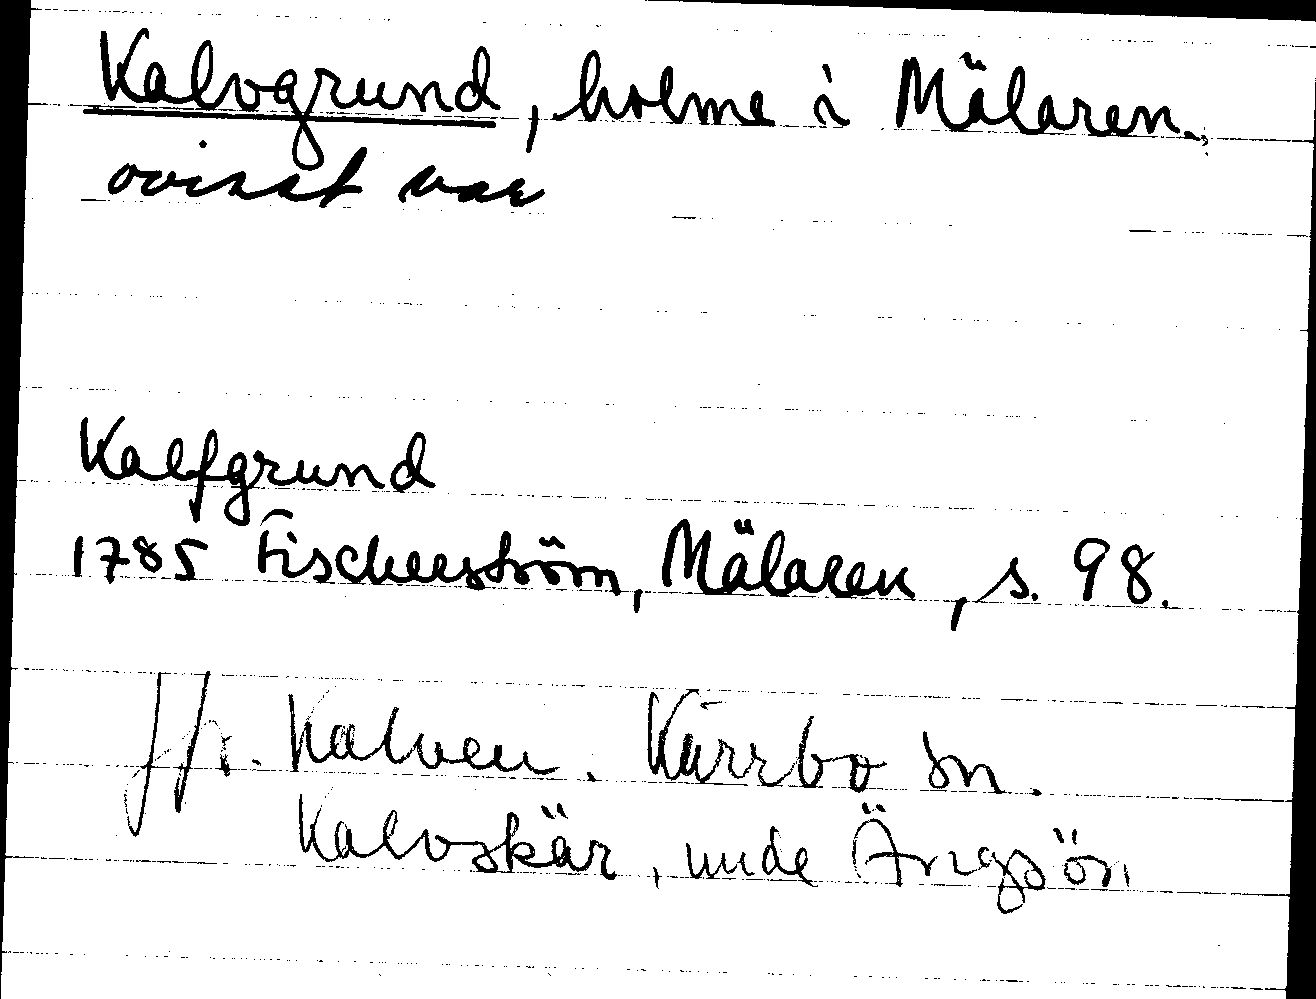 Kalvgrund, holme i Mälaren,
ovisst var
Kalfgrund
1785 Fischerström, Mälaren, s. 98.
Jfr. Kalven. Kärrbo sn.
Kalvskär, unde Ängsön